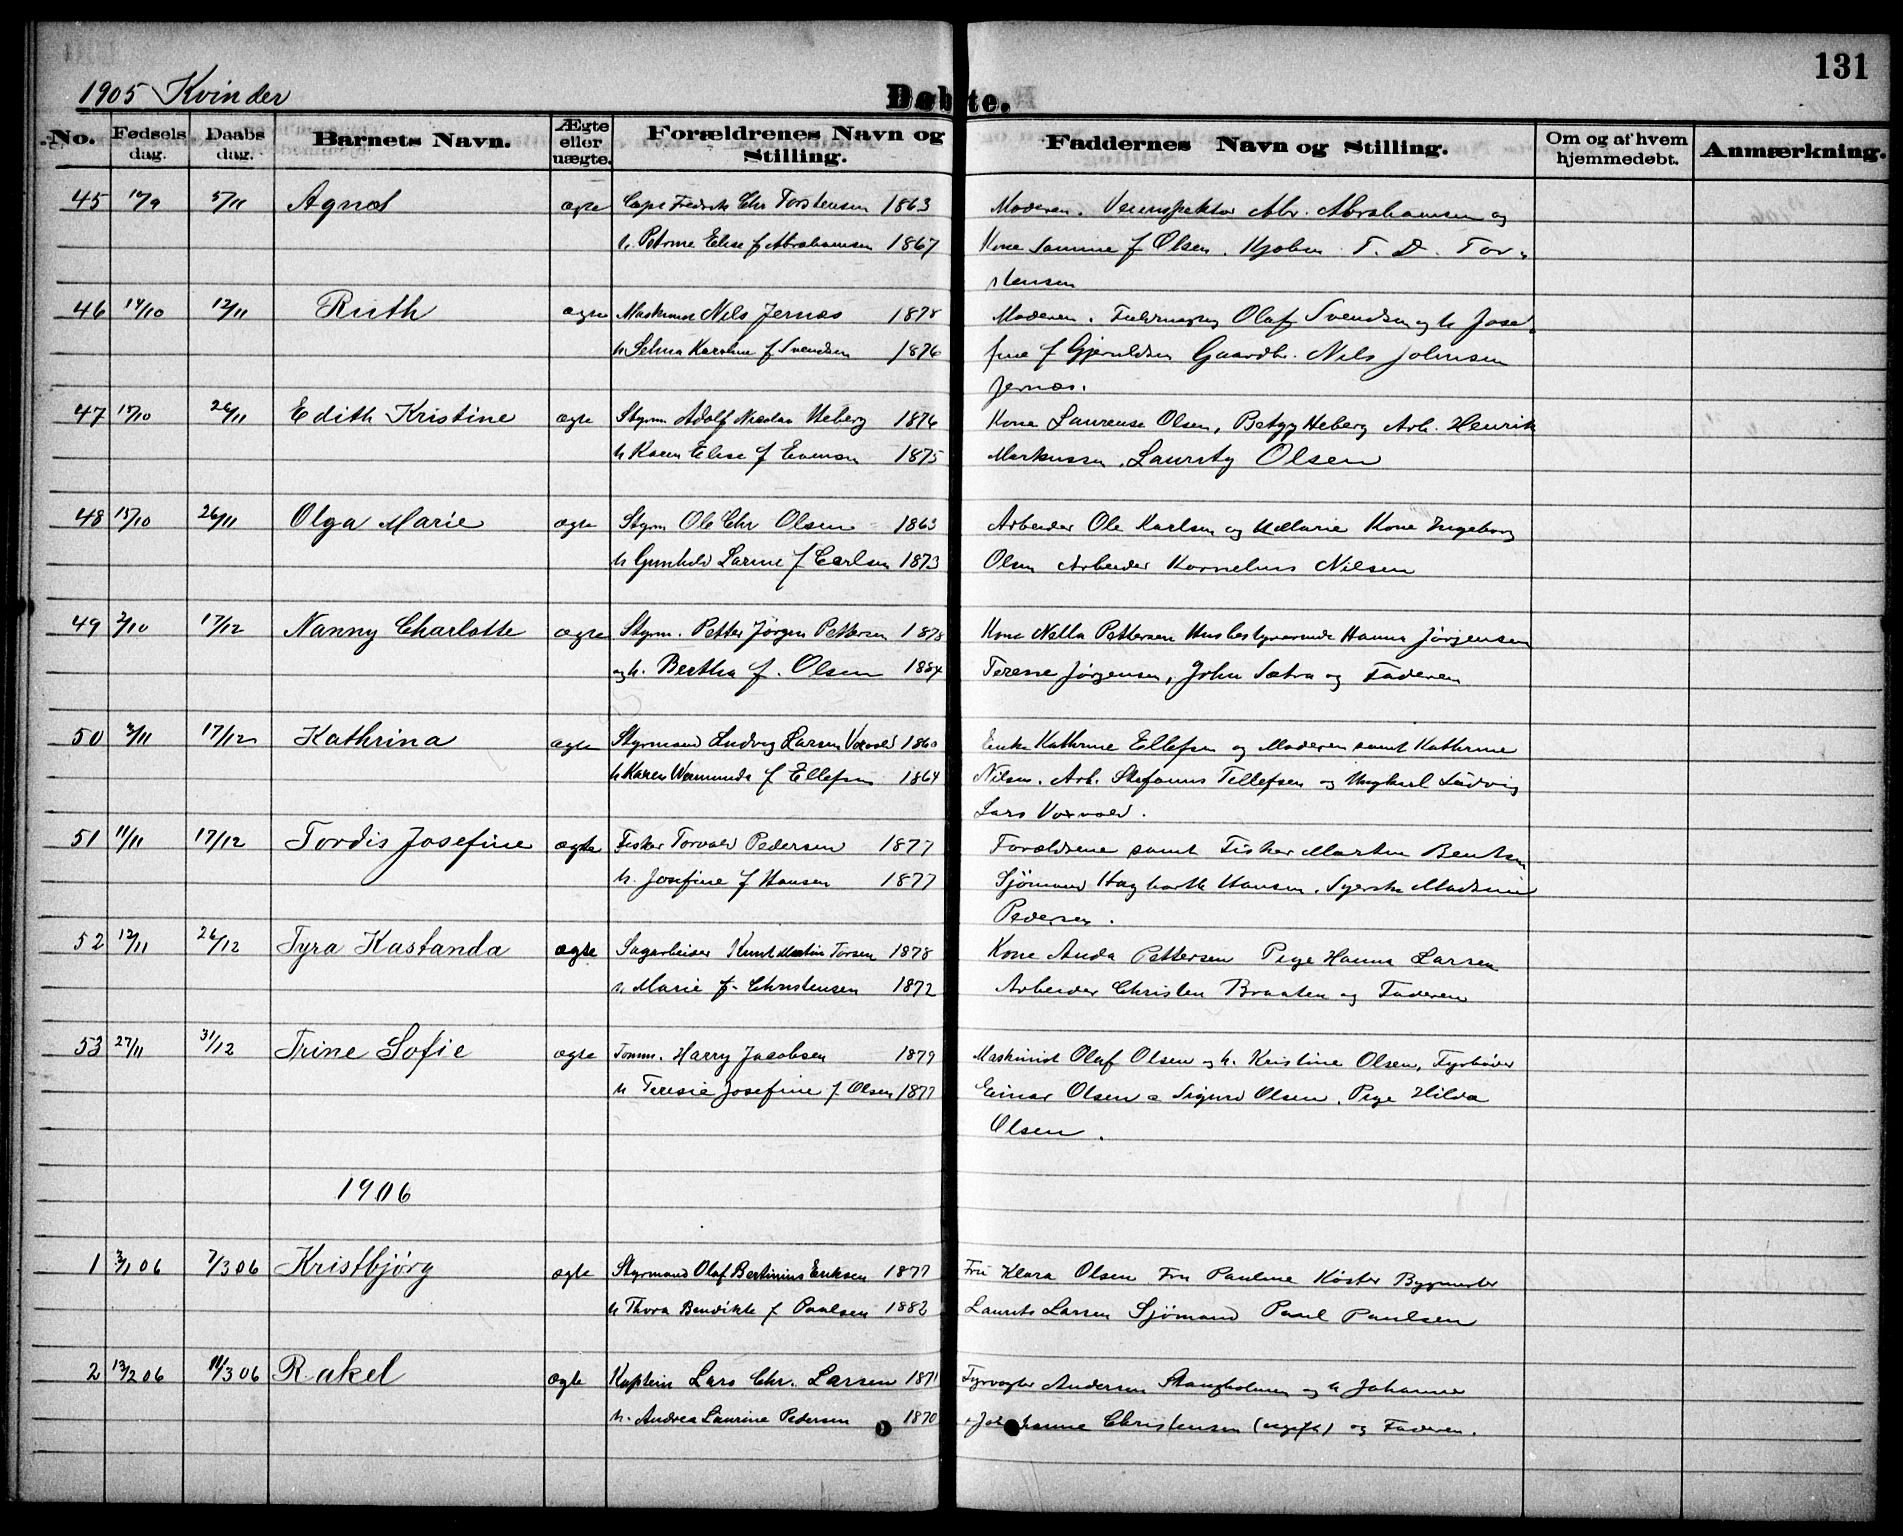 131
1905 Kvinder
Døbte.
No. Fødselsdag. Daabsdag. Barnets Navn. Ægte eller uægte. Forældrenes Navn og Stilling. Faddernes Navn og Stilling. Om og af hvem hjemmedøbt. Anmærkning.
45 5/11 Agnes ægte Capt Fredrik Chr Torstensen 1863 Moderen. Veiinspektør Abr. Abrahamsen og
h. Petrine Elise f Abrahamsen 1867 Kone f Olsen. T. D. Tor-
stensen
46 14/10 12/11 Ruth ægte Maskinist Nils Jernæs 1878 Moderen. Olaf Svendsen og h Jose-
h Selma Karoline f Svendsen 1876 fine f Gjeruldsen Gaardbr. Nils Johnsen
Jernæs.
47 26/11 Edith Kristine ægte Styrm Adolf Nicolai Heberg 1876 Kone Laurense Olsen, Betzy Heberg Arb. Henrik
h Karen Elise f Evensen 1875 Markussen. Olsen
48 15/10 26/11 Olga Marie ægte Styrm Ole Chr Olsen 1863 Arbeider Ole Karlsen og h Marie Kone Ingeborg
h Gunhild Larine f Carlsen 1873 Olsen Arbeider Kornelius Nilsen
49 2/10 17/12 Nanny Charlotte ægte Styrm. Petter Jørgen Pettersen 1878 Kone Nella Pettersen Husbestyrerinde Hanna Jørgensen
og h. Bertha f. Olsen 1884 Terese Jørgensen, John Sætra og Faderen
50 17/12 Kathrina ægte Styrmand Ludvig Larsen Voxvold 1860 Enke Kathrine Ellefsen og Moderen samt Kathrine
h Karen f Ellefsen 1864 Nilsen. Arb. Stefanus Tellefsen og Ungkarl Ludvig
Lars Voxvold.
51 11/11 17/12 Tordis Josefine ægte Fisker Torvald Pedersen 1877 Forældrene samt Fisker Martin Bentsen
h. Josefine f Hansen 1877 Sjømand Hagbarth Hansen. Syerske
Pedersen.
52 12/11 26/12 Tyra Kastanda ægte Sagarbeider Knut Martin Torsen 1878 Kone Anda Pettersen Pige Hanna Larsen
h. Marie f. Christensen 1872 Arbeider Christen Braaten og Faderen
53 27/11 31/12 Trine Sofie ægte Tømm. Harry Jacobsen 1879 Maskinist Olaf Olsen og h. Kristine Olsen, Fyrbøder
h Teresie Josefine f. Olsen 1877 Einar Olsen a Sigurd Olsen. Pige Hilda
Olsen.
1906
1 3/1 06 7/3 06 Kristbjørg ægte Styrmand Olaf Bertinius Eriksen 1877 Fru Klara Olsen Fru Pauline Køster Bygmester
h Thora Bendikte f Paulsen 1882 Laurits Larsen Sjömand Paul Paulsen
2 13/2 06 11/3 06 Rakel ægte Kaptein Lars Chr. Larsen 1871 Fyrvogter Andersen Stangholmen og h Johanne
h. Andrea Laurine Pedersen 1870 Johanne Christensen (ugift) og Faderen.